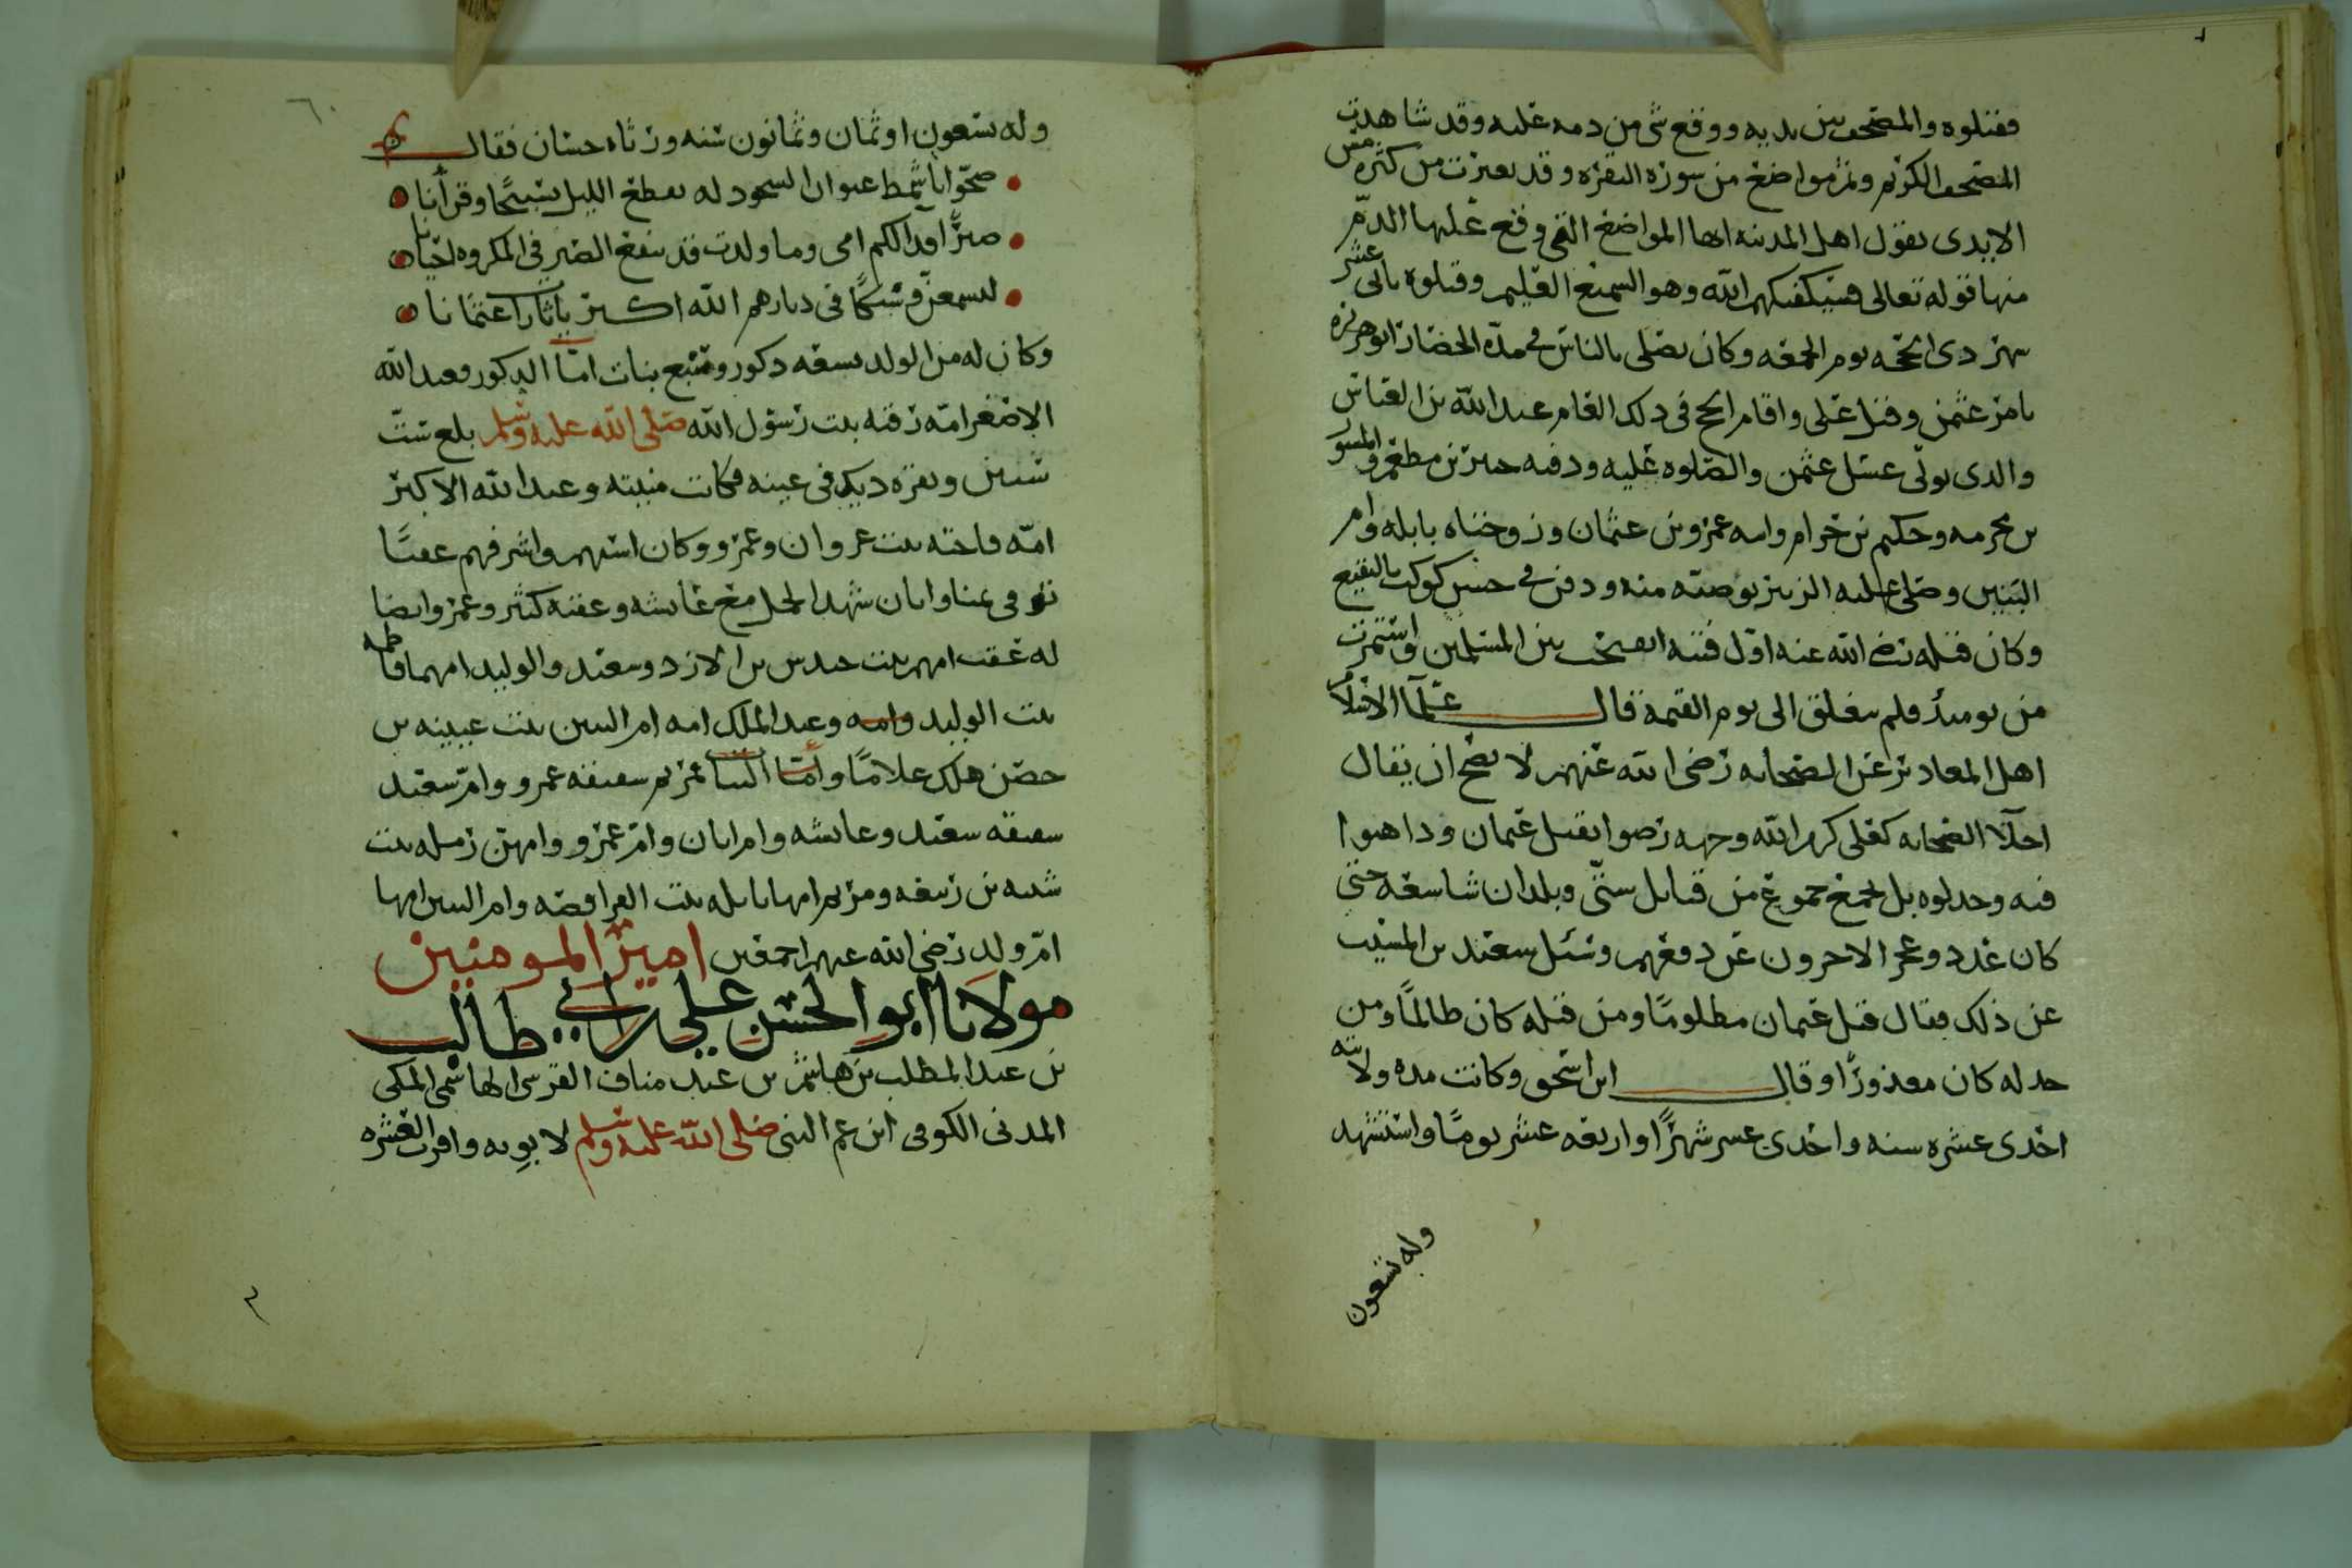 فقتلوه والمصحف بين يديه ووقع شي من دمه عليه وقد شاهدت
المصحف الكريم وثم مواضع من سورة البقره وقد تغيرت من كثرة مس
الايدي يقول اهل المدينه انها المواضع التي وقع عليها الدم
منها قوله تعالى فسيكفيكهم الله وهو السميع العليم وقتلوه ثاني عشر
شهر ذي الحجه يوم الجمعه وكان يصلي بالناس في مدة الحصار ابو هريره
بامر عثمن وقتل علي واقام الحج في ذلك العام عبد الله بن العباس
والذي تولى غسل عثمن والصلوه عليه ودفنه جبير بن مطعم والمسور
بن مخرمه وحكيم بن حزام وابنه عمرو بن عثمان وزوجتاه نايله وام
البنين وصلى عليه الزبير بوصيّه منه ودفن في حش كوكب بالبقيع
وكان قتله رضي الله عنه اول فتنه انفتحت بين المسلمين واستمرت
من يوميذ فلم تغلق الى يوم القيمة قال علمآ الاسلام
اهل المعاذير عن الصحابه رضي الله عنهم لا يصح ان يقال
اجلآ الصحابه كعلي كرم الله وجهه رضوا بقتل عثمان وداهنوا
فيه وخذلوه بل تجمع جموع من قبايل ستى وبلدان شاسعه حتى
كان غدد وعجز الاخرون عن دفعهم وسئل سعيد بن المسيب
عن ذلك فقال قتل عثمان مظلومًا ومن قتله كان ظالمًا ومن
خذله كان معذورًا وقال ابن اسحق وكانت مدة ولايته
احدى عشره سنه واحدى عشر شهرًا واربعه عشر يومًا واستشهد
وله تسعون
وله تسعون او ثمان وثمانون سنه ورثاه حسان فقال
ضحّوا باشمط عنوان السجود له يقطع الليل تسبيحًا وقرأنا
صبرًا فدآ لكم امي وما ولدت قد ينفع الصبر في المكروه احيانا
لتسمعن وشيكًا في ديارهم الله اكبر يا ثارات عثمانا
وكان له من الولد تسعه ذكور وسبع بنات امّا الذكور فعبد الله
الاصغر امّه رقيه بنت رسول الله صلى الله عليه وسلم بلغ ست
سنين ونقره ديك في عينه فكانت منيته وعبد الله الاكبر
امّه فاخته بنت غزوان وعمرو وكان اسنهم واشرفهم عقبًا
توفي بمنا وابان شهد الجمل مع عايشه وعقبه كثير وعمر وايضا
له عقب امهم بنت جندب من الازد وسعيد والوليد امهما فاطمه
بنت الوليد وعبد الملك امه ام البنين بنت عيينه بن
حصن هلك غلامًا وأمّا البنات مريم شقيقه عمرو وام سعيد
شقيقه سعيد وعايشه وام ابان وام عمرو وامهن رمله بنت
شيبه بن ربيعه ومريم امها نايله بنت الفرافصه وام البنين امها
امّ ولد رضي الله عنهم اجمعين امير المومنين
مولانا ابو الحسن علي بن ابي طالب
بن عبد المطلب بن هاشم بن عبد مناف القرشي الهاشمي المكي
المدني الكوفي ابن عم النبي صلى الله عليه وسلم لابويه واقرب العشره